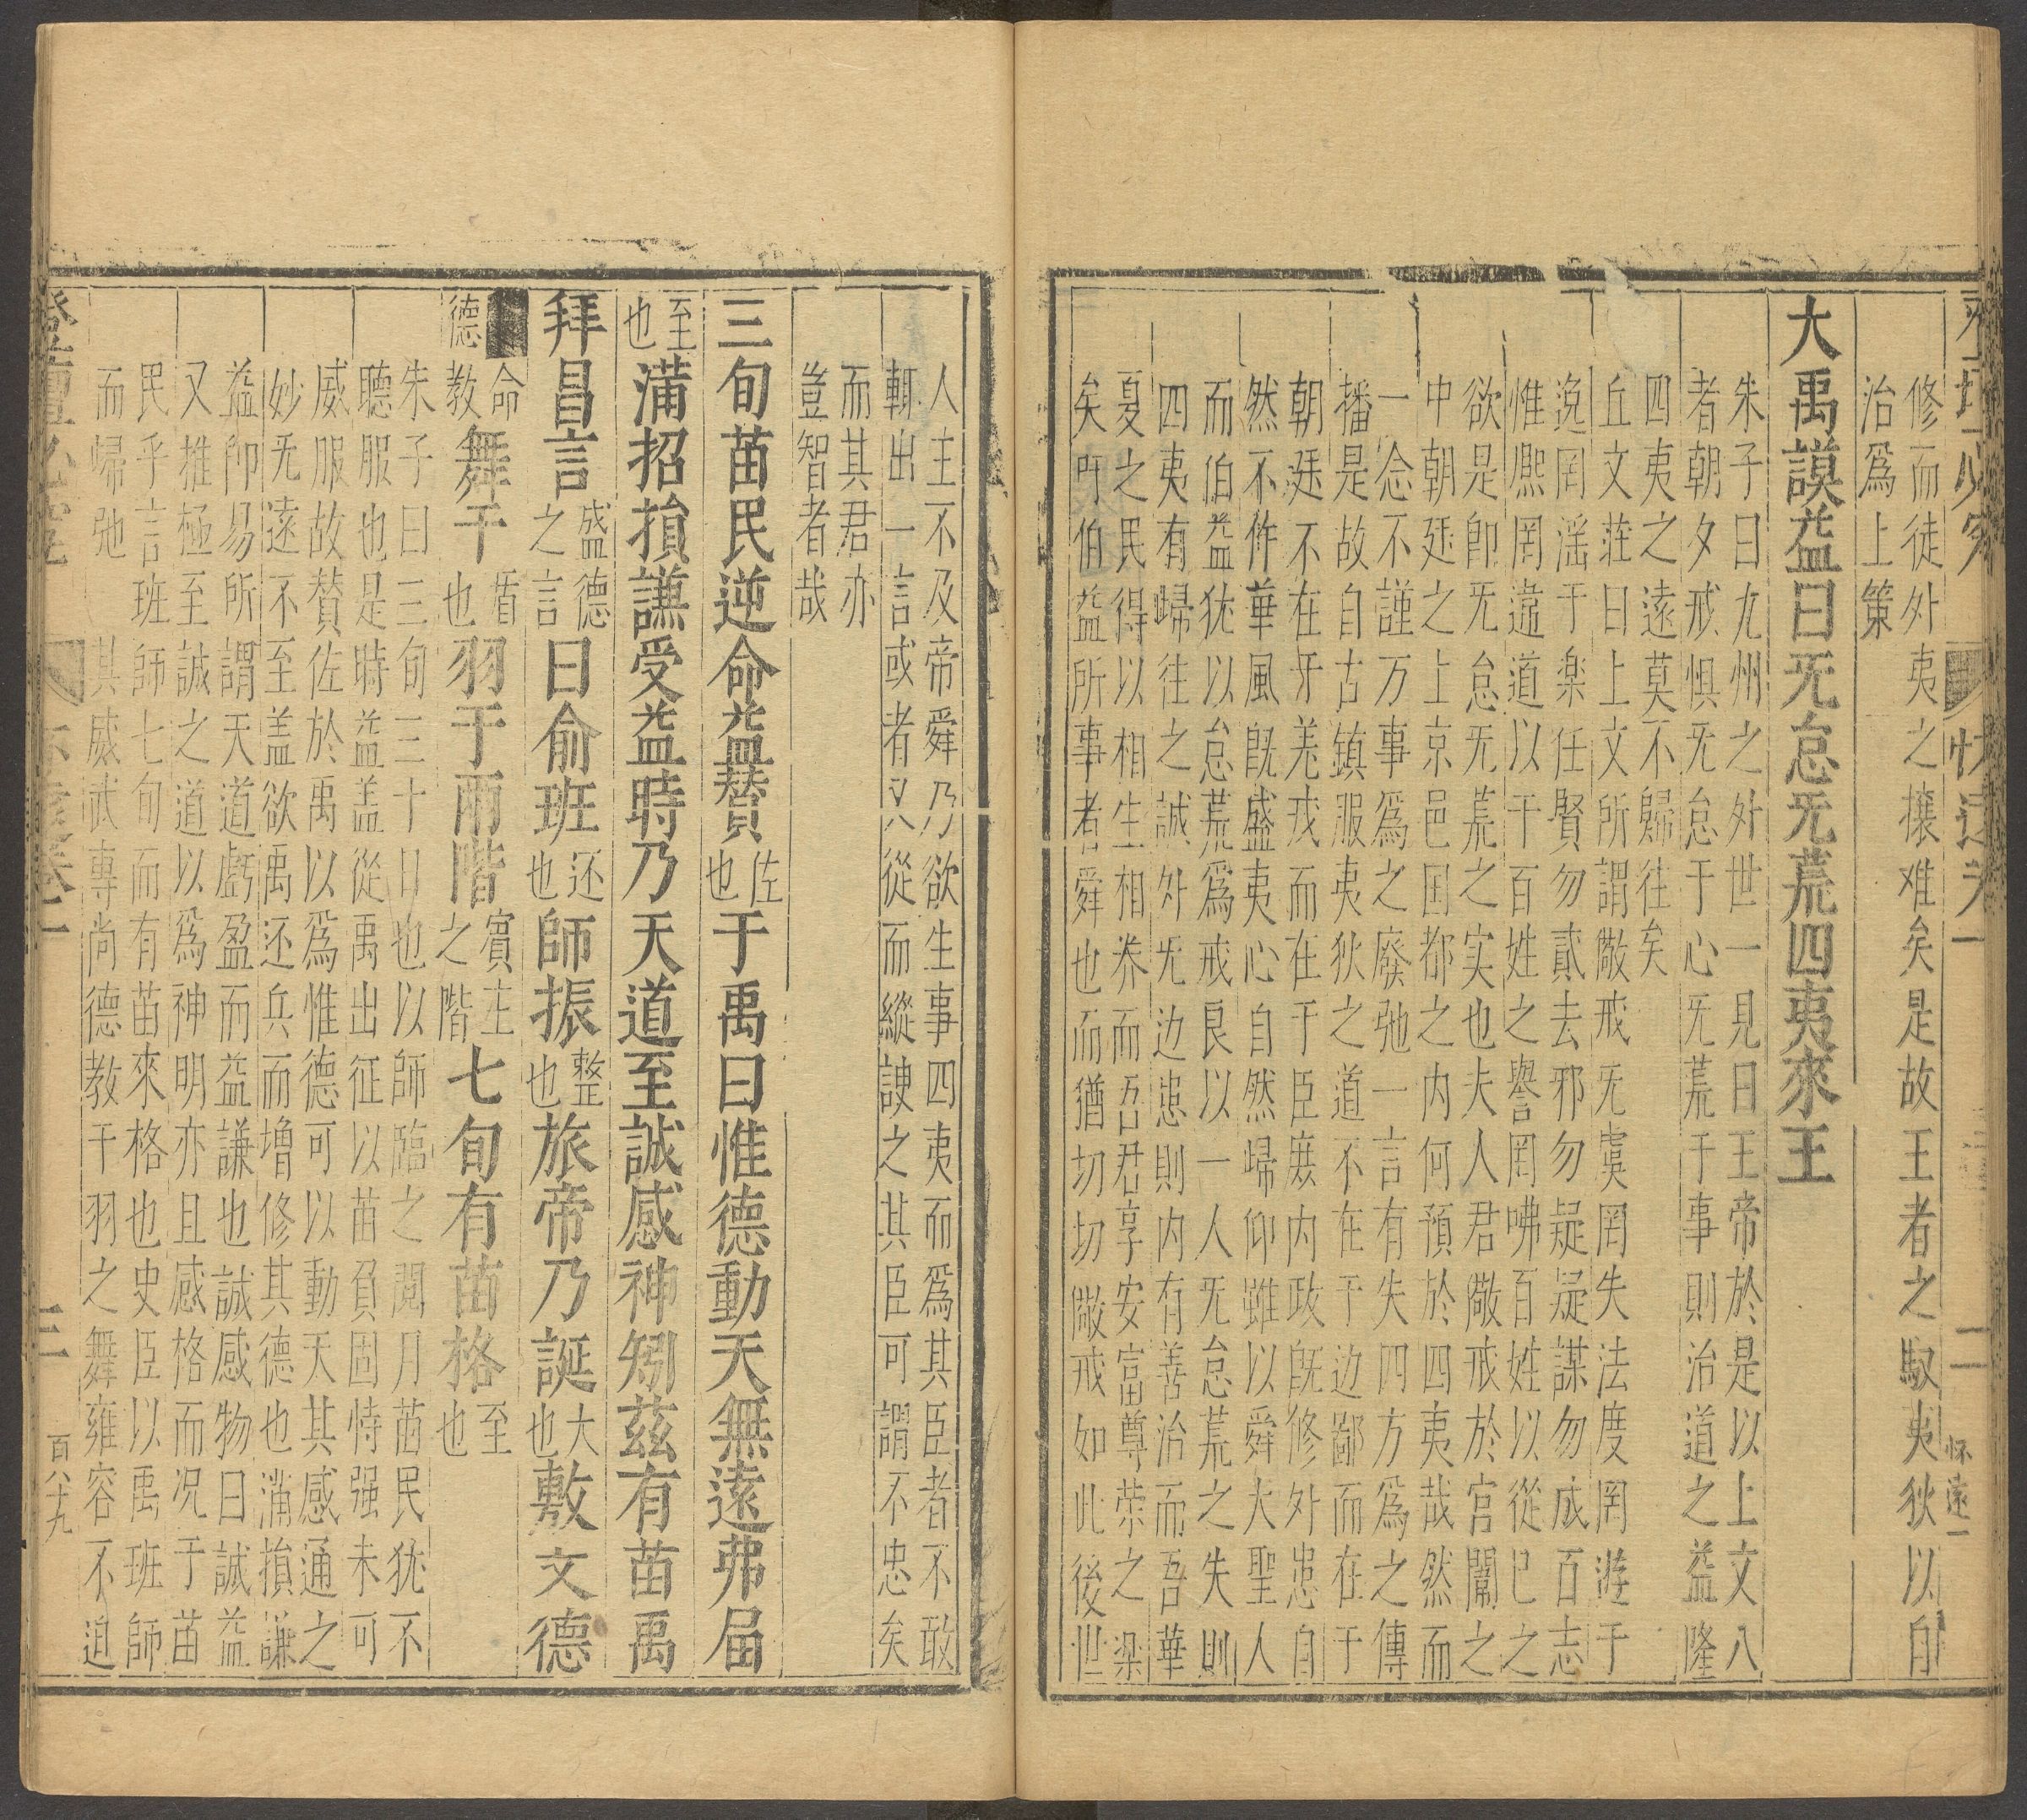 修而徒外夷之攘难矣是故王者之馭夷狄以自
治爲上策
大禹謨益曰旡怠旡荒四夷來王
朱子曰九州之外世一見曰王帝於是以上文八
者朝夕戒惧旡怠于心旡荒于事則治道之益隆
四夷之遠莫不歸往矣
丘文莊曰上文所謂儆戒旡虞罔失法度罔遊于
逸罔滛于楽任賢勿貳去邪勿疑疑謀勿成百志
惟熈罔違道以干百姓之譽罔咈百姓以從己之
欲是卽旡怠旡荒之实也夫人君儆戒於宮闈之
中朝廷之上京邑囯都之内何預於四夷哉然而
一念不謹万事爲之廢弛一言有失四方爲之傳
播是故自古鎮服夷狄之道不在于边鄙而在于
朝廷不在牙羌戎而在于臣庻内政旣修外患自
然不作華風旣盛夷心自然歸仰雖以舜大聖人
而伯益犹以怠荒爲戒良以一人旡怠荒之失則
四夷有歸往之誠外旡边患則内有善治而吾華
夏之民得以相生相养而吾君享安富尊荣之楽
矣吁伯益所事者舜也而猶切切儆戒如此後世
怀遠一
人主不及帝舜乃欲生事四夷而爲其臣者不敢
輒出一言或者又從而縱諛之其臣可謂不忠矣
而其君亦
豈智者哉
三旬苗民逆命益賛佐也于禹曰惟德動天無遠弗届
至也滿招損謙受益時乃天道至誠感神矧茲有苗禹
拜昌言盛德之言曰俞班还也師振整也旅帝乃誕大也敷文德
命德教舞干盾也羽于兩階賓主之階七旬有苗格至也
朱子曰三旬三十日也以師臨之閱月苗民犹不
聽服也是時益盖從禹出征以苗負固恃强未可
威服故賛佐於禹以爲惟德可以動天其感通之
妙旡遠不至盖欲禹还兵而增修其德也滿損謙
益卽易所謂天道虧盈而益謙也誠感物曰諴益
又推極至誠之道以爲神明亦且感格而况于苗
民乎言班師七旬而有苗來格也史臣以禹班師
而歸弛其威武專尚德教干羽之舞雍容不迫
百八十九